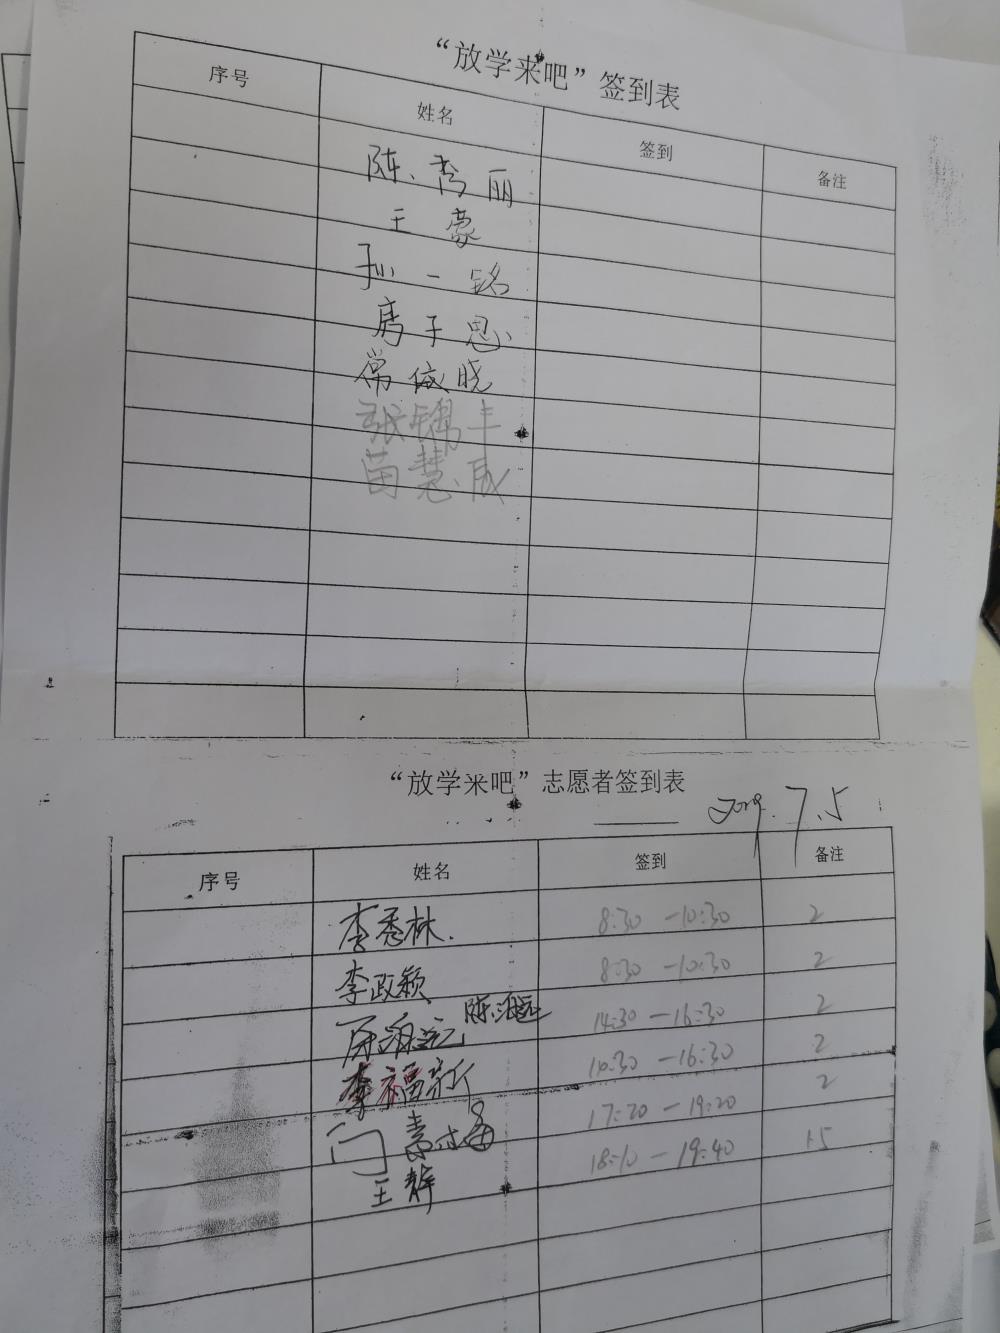 “放学来吧”签到表
序号 姓名 签到 备注
陈秀丽
王豪
孙一铭
房子思
常依晓
张锦丰
苗慧成
“放学来吧”志愿者签到表
2019.7.5
序号 姓名 签到 备注
李秀林 8:30-10:30 2
李政颖 8:30-10:30 2
陈 14:30-16:30 2
李福 10:30-16:30 2
门素 17:20-19:20 2
王静 18:10-19:40 1.5